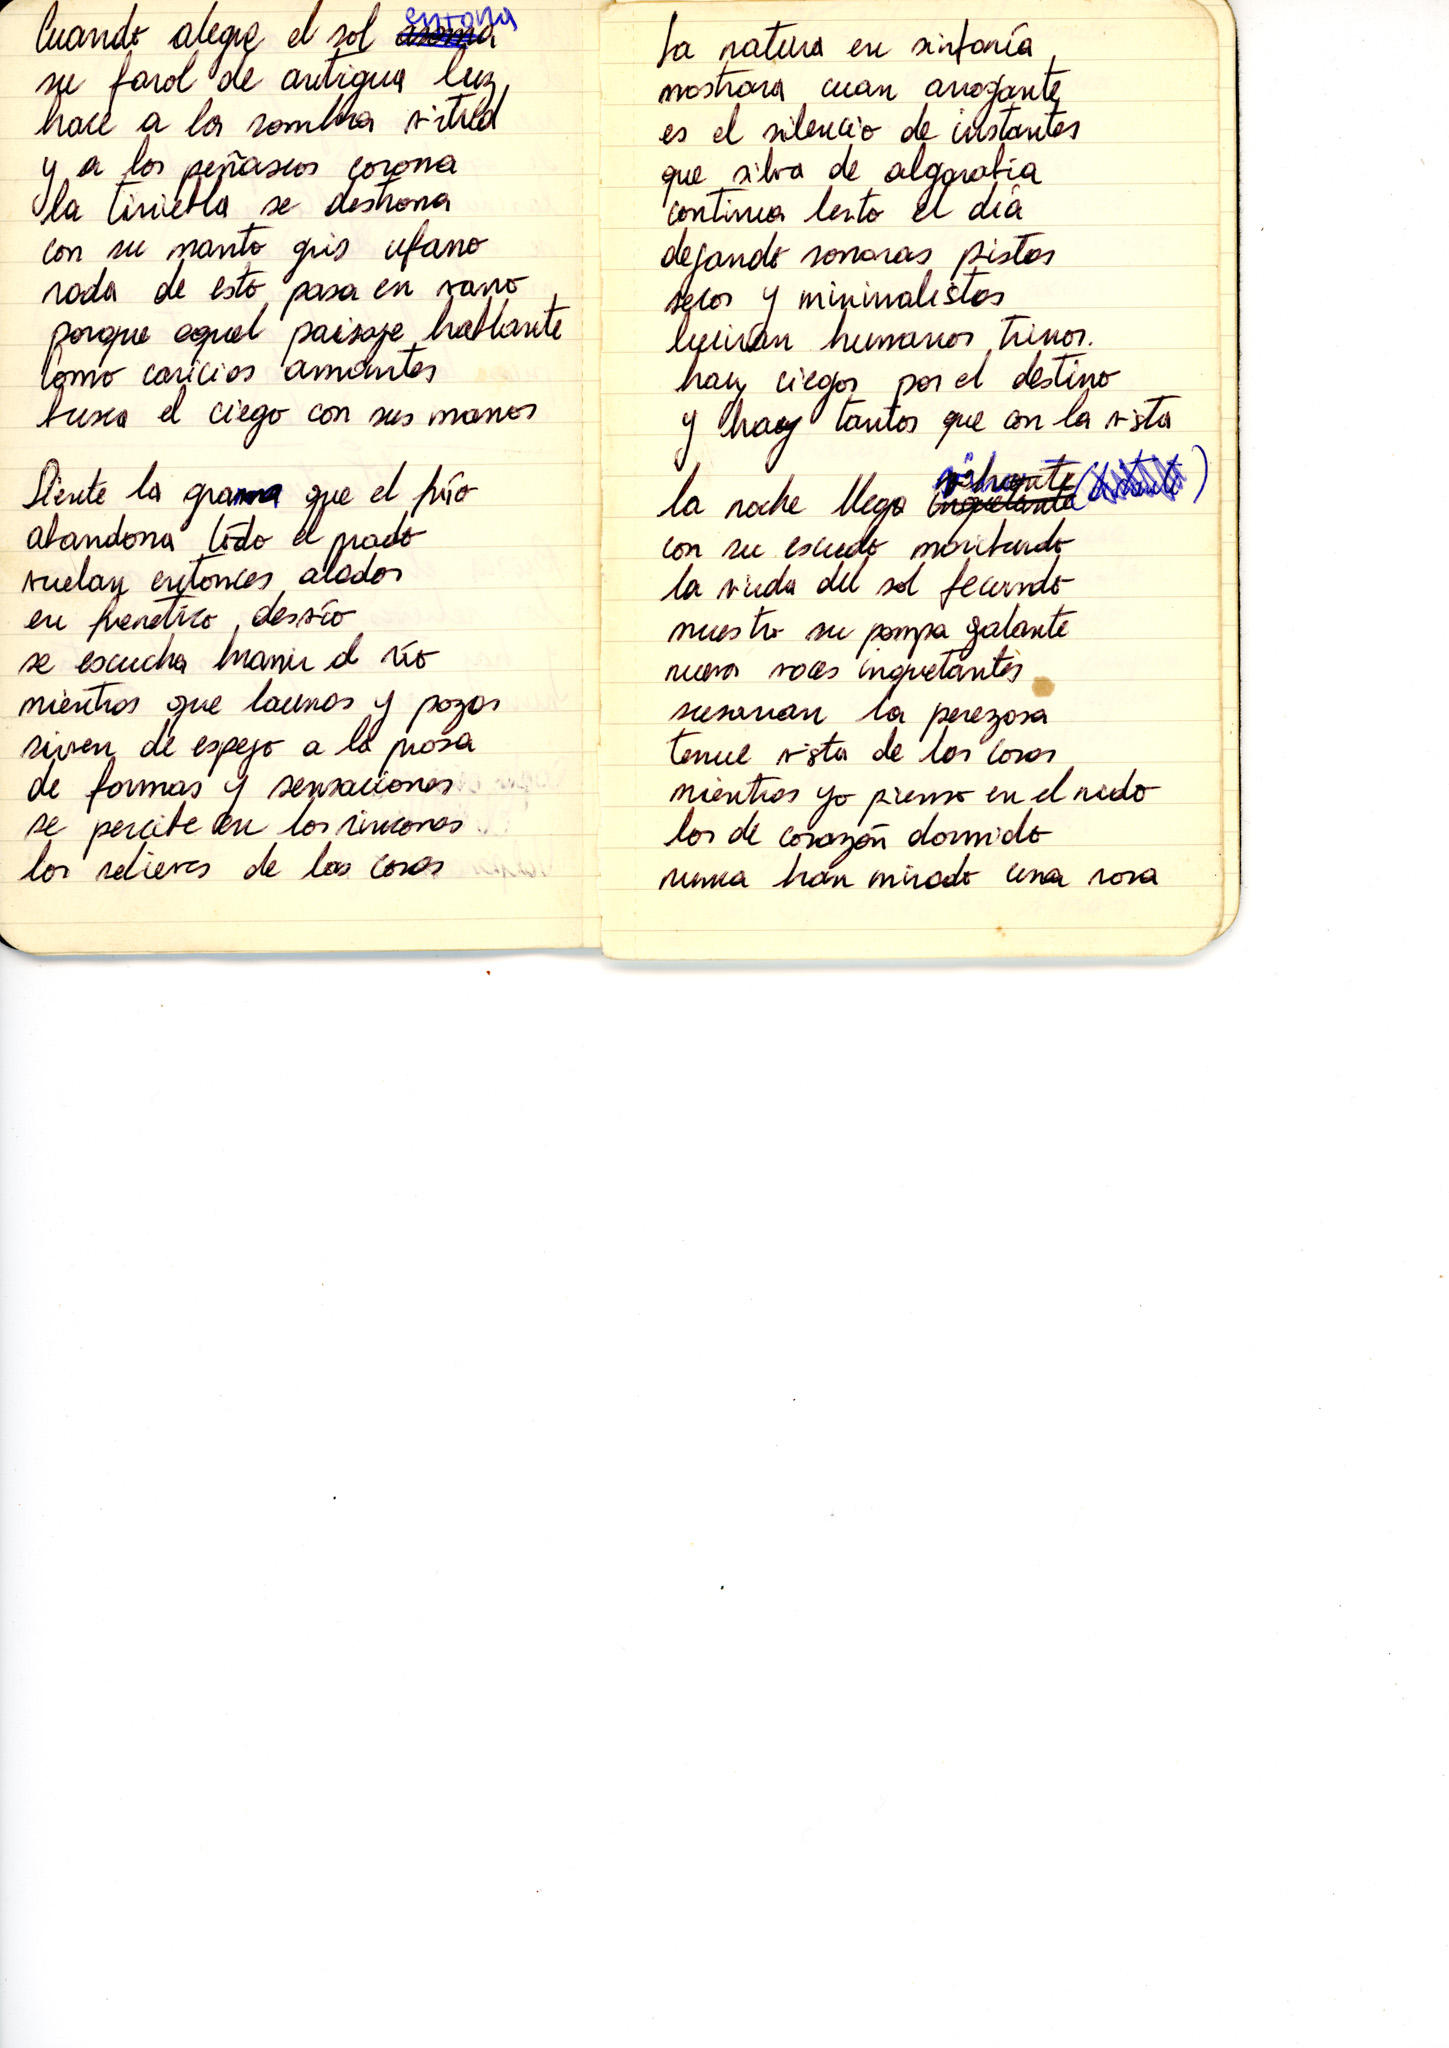 Cuando alegre el sol entona
su farol de antigua luz,
hace a la sombra virtud
y a los peñascos corona
la tiniebla se destrona
con su manto gris ufano
nada de esto pasa en vano
porque aquel paisaje hablante
como caricias amantes
busca el ciego con sus manos
Siente la grama que el frío
abandona todo el prado
vuelan entonces alados
en frenético desvío
se escucha bramir el río
mientras que lacunas y pozos
sirven de espejo a la prosa
de formas y sensaciones
se percibe en los rincones
los relieves de las cosas
La natura en sinfonía
mostrara cuan arrogante
es el silencio de instantes
que silva de algarabia
continua lento el día
dejando sonoras pistas
secas y minimalistas
lucirán humanos trinos.
hay ciegos por el destino
y hay tantos que con la vista
la noche llega vibrante
con su escudo moribundo
la viuda del sol fecundo
muestra su pompa galante
nueva voces inquetantes
susurran la perezosa
tenue vista de las cosas
mientras yo pienso en el nudo
los de corazón dormido
nunca han mirado una rosa